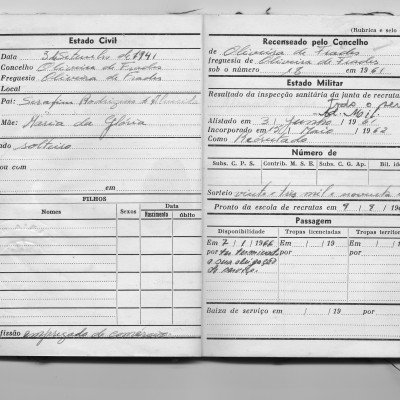 (Rubrica e selo
Estado Civil
Data 3 Setembro de 1941
Concelho Oliveira de Frades
Freguesia Oliveira de Frades
Local
Pai: Serafim Rodrigues d'Almeida
Mãe: Maria da Glória
ado solteiro
ou com
em
FILHOS
Nomes
Sexos
Data
Nascimento
óbito
fissão empregado de comércio.
Recenseado pelo Concelho
de Oliveira de Frades
freguesia de Oliveira de Frades
sob o número 18 em 1961
Estado Militar
Resultado da inspecção sanitária da junta de recruta
Alistado em 3 / Junho / 1961
Incorporado em / Maio / 1962
Como Recrutado
Número de
Subs. C. P. S.
Contrib. M. S. E.
Subs. C. G. Ap.
Bil. id
Sorteio vinte e três mil e noventa
Pronto da escola de recrutas em 9 / 8 / 19
Passagem
Disponibilidade
Tropas licenciadas
Tropas territor
Em 2 / 1 / 1966
por ter terminado
a sua obrigação
de serviço.
Em / / 19
por
Em / / 19
por
Baixa de serviço em / / 19 por